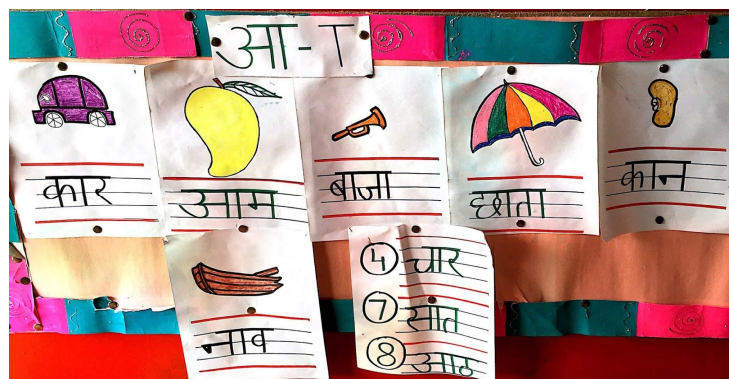 आ-ा
कार
आम
बाजा
छाता
कान
नाव
4 चार
7 सात
8 आठ